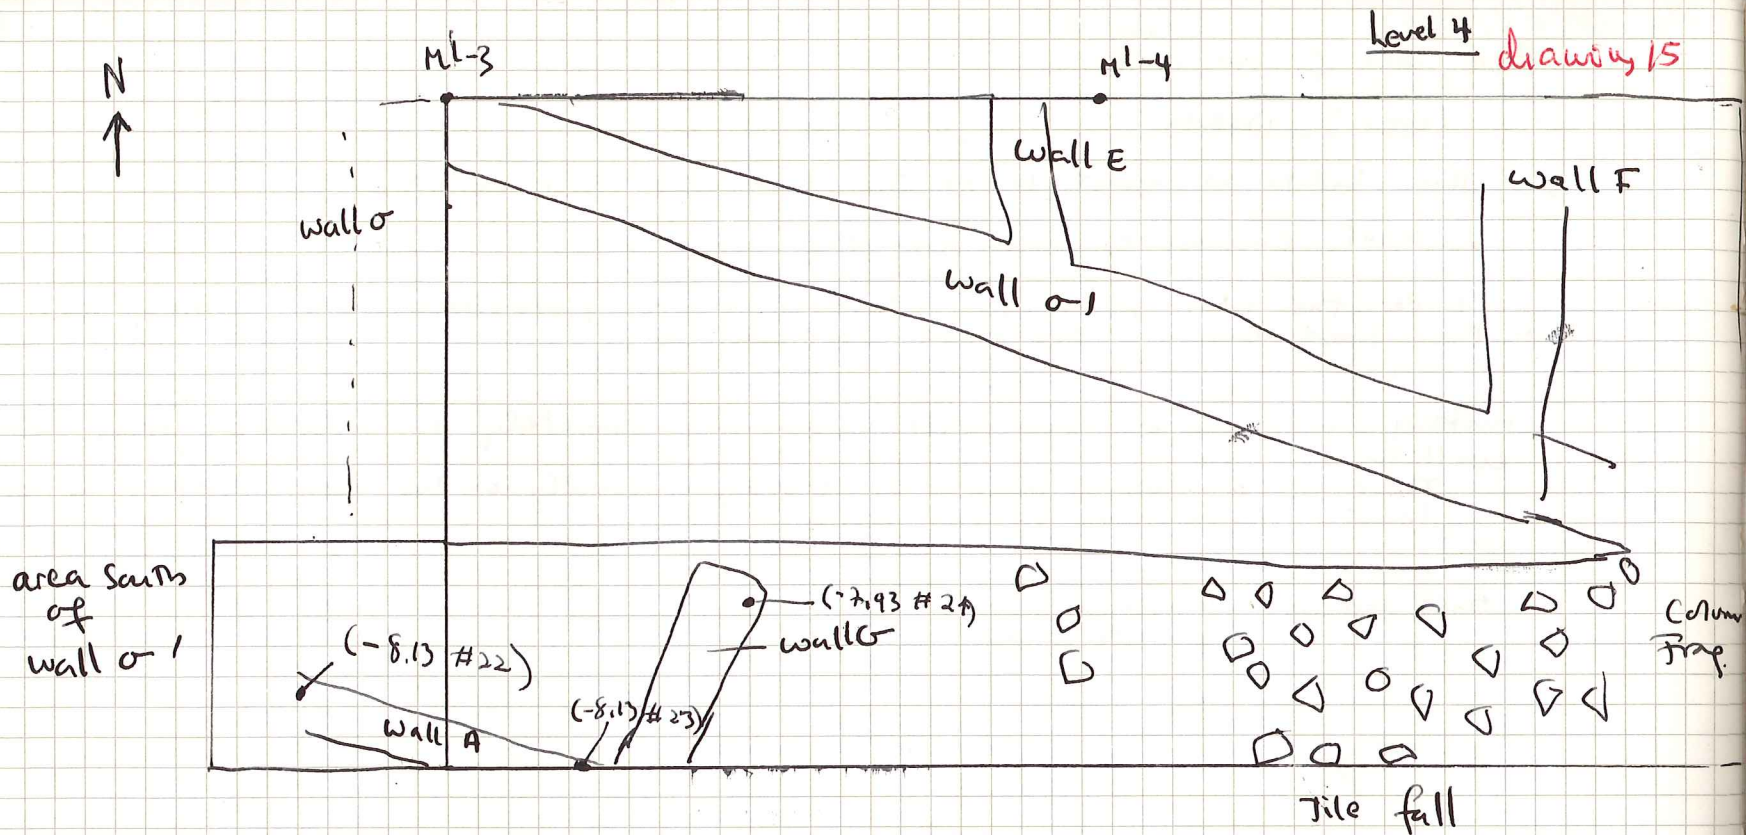 Level 4
drawing 15
N
M'-3
M'-4
wall E
wall F
wall σ
wall σ1
area South
of
wall σ1
(-8.13 #22)
(-7.93 #24)
wall G
(-8.13 #23)
wall A
Column
Frag.
Tile fall